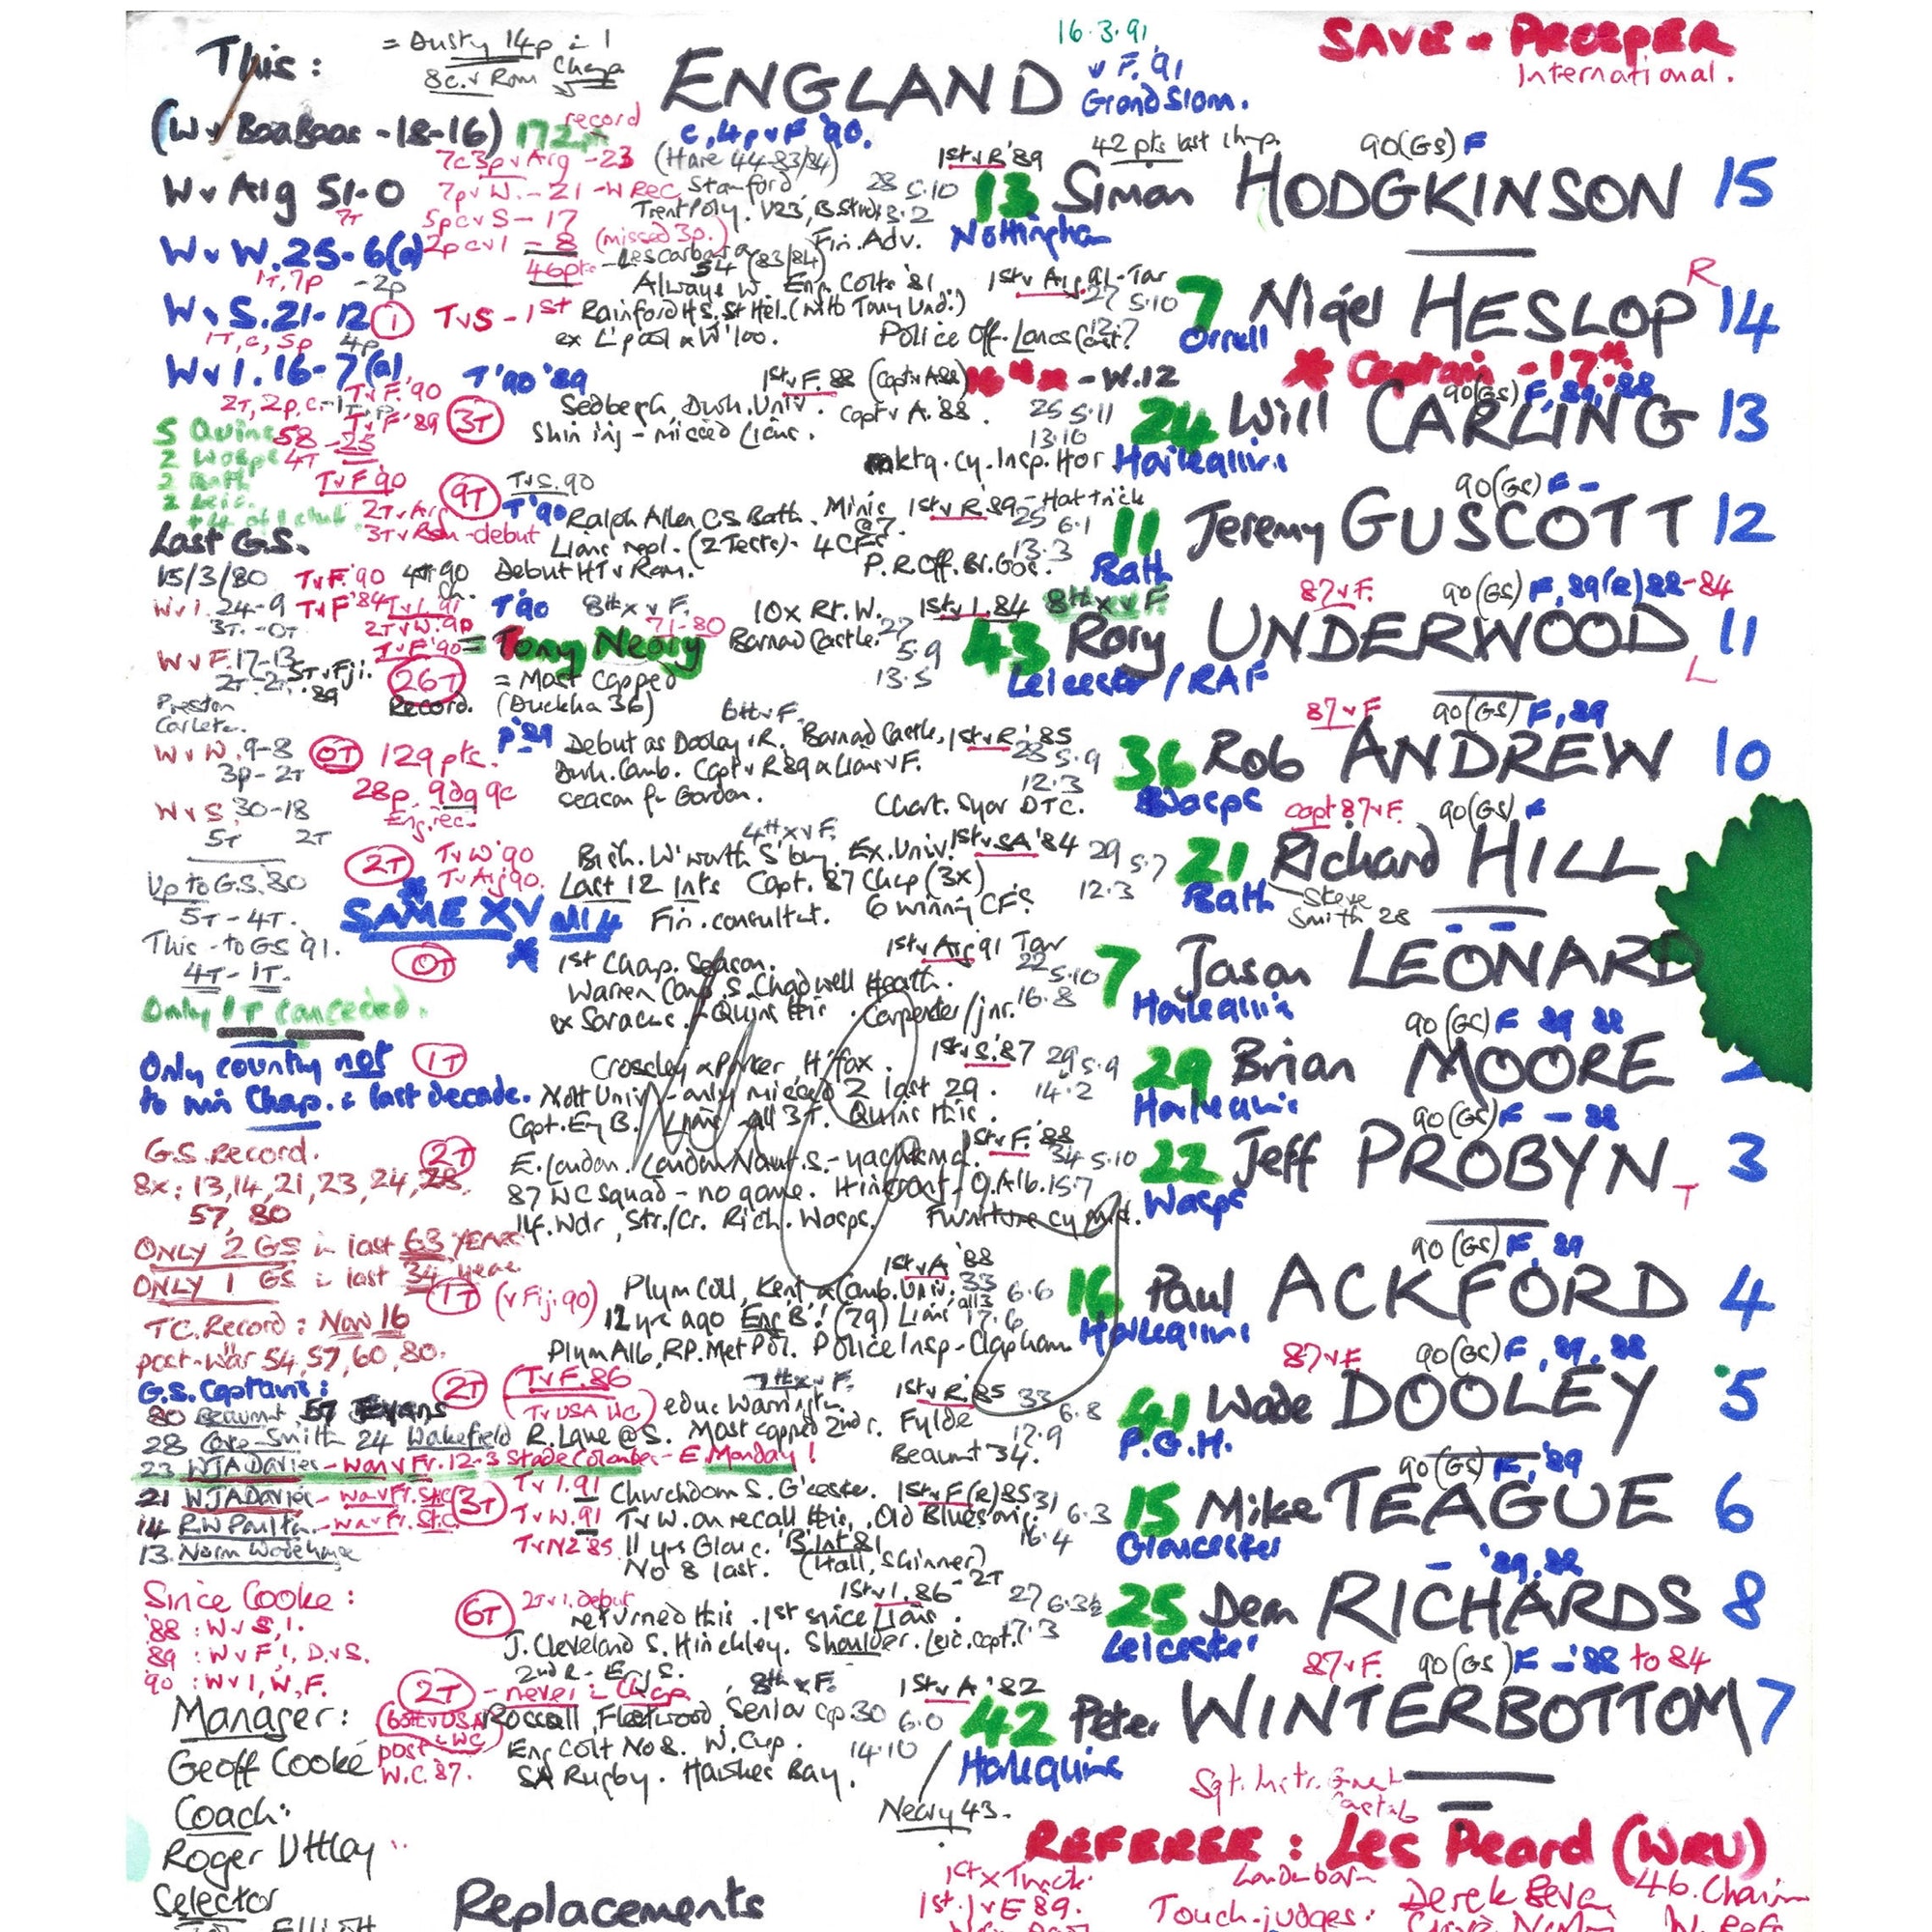 This:
= Dusty 14p in 1
8c. v Rom Chmp
ENGLAND
16.3.91
v F. '91
Grand Slam.
SAVE - PROSPER
International.
(W v BaaBaas - 18-16) 172p record
c, 4p v F '90.
7c 3p v Arg - 23
(Hare 44 - 83/84)
1st v R '89
42 pts last chp.
90(GS) F
W v Arg 51-0
7T
7p v W. - 21 - W Rec
Stanford
28 5.10
13 Simon HODGKINSON 15
5pc v S - 17
Trent Poly. V23, B. Stud 13.2
Nottingham
W v W. 25-6(a)
2pc v I - 8 (missed 3p.)
Fin. Adv.
1T, 7p - 2p
46pts - Lescarboura
54 (83/84)
Always W. Eng. Colts '81.
1st v Arg. 91 - Tor
27 5.10
7 Nigel HESLOP R 14
W v S. 21-12 (1)
T v S - 1st
Rainford HS. St Hel. (with Tony Und.)
1T, c, 5p 4p
ex L'pool & W '100.
Police Off. Lancs
Orrell
W v I. 16-7(a)
T '90 '89
1st v F. 88 (Capt v A88)
- W.12
* Captain - 17.*
2T, 2p, c.
T v F. '90
T v F '89
3T
Sedbergh, Durh. Univ. Capt v A. '88.
Shin inj - missed Lions.
25 5.11
13.10
90(GS) F, 89, 88
24 Will CARLING 13
mktg. cy. Insp. Hor
Harlequins
5 Quins 58 - 25
2 Wasps 4T
2 Bath
2 Leic.
+ 4 of 1 club.
T v F 90
2T v Arg
3T v Rom - debut
9T
T v S. 90
T '90
Ralph Allen C.S. Bath. Minis
1st v R. '89 - Hat trick
25 6.1
13.3
90(GS) F -
11 Jeremy GUSCOTT 12
Lions repl. (2 Tests) - 4 CFs
Debut HT v Rom.
P.R. Off. Br. Gas.
Bath
Last G.S.
15/3/80
W v I. 24-9
3T - 0T
T v F. '90
T v F '84 T v I. 91
2T v W. 90
T v F '90
26T
Record.
T '90
8th x v F.
10x Rt. W.
1st v I. 84
8th x v F.
87 v F.
90(GS) F, 89(R) 88 - 84
= Tony Neary
71-80
Barnard Castle.
27
5.9
13.5
43 Rory UNDERWOOD L 11
Leicester / RAF
= Most capped
(Duckham 36)
W v F. 17-13
2T - 2T
5T v Fiji. '89
Preston
Carleton.
W v W. 9-8
3p - 2T
0T 129 pts.
28p. 9dg 9c
Eng. rec.
p '89
6th v F.
Debut as Dooley v R. Barnard Castle,
1st v R. '85
28 5.9
12.3
87 v F
90(GS) F, 89
36 Rob ANDREW 10
Durh. Camb. Capt v R 89 & Lions v F.
season for Gordon.
Chart. Syor DTC.
Wasps
W v S. 30-18
5T 2T
2T
T v W '90
T v Arg 90.
4th x v F.
Bish. W'worth S'bury. Ex. Univ.
1st v SA '84
29 5.7
12.3
capt 87 v F.
90(GS) F
21 Richard HILL
Last 12 Ints Capt. 87 Chp (3x)
Fin. consultat. 6 winning CFs
Bath
Steve
Smith 28
Up to G.S. 80
5T - 4T.
SAME XV all 4
This - to GS '91.
4T - 1T.
Only 1T conceded.
0T
1st Chap. Season.
1st v Arg 91 Tor
22 5.10
16.8
7 Jason LEONARD
Warren Comp. S. Chadwell Heath.
ex Saracens. Quins this. Carpenter/jnr.
Harlequins
Only country not
to win Chap. in last decade.
1T
Crossley & Porter H'fax.
1st v S. '87
29 5.9
14.2
90(GS) F 89 88
29 Brian MOORE
Nott Univ - only missed 2 last 29.
Capt. Eng B. Lions - all 3T. Quins this.
Harlequins
G.S. Record.
8x: 13, 14, 21, 23, 24, 28,
57, 80
2T
1st v F. '88
34 5.10
15.7
90(GS) F - 88
22 Jeff PROBYN T 3
E. London. London Naut. S. -
87 WC squad - no game. O. Alb.
14. Wdr, Str./Cr. Rich. Wasps. Furniture cy
Wasps
ONLY 2 GS in last 63 YEARS
ONLY 1 GS in last 34 years
1T (v Fij. 90)
1st v A '88
33 6.6
17.6
90(GS) F, 89
16 Paul ACKFORD 4
Plym Coll, Kent & Camb. Univ.
12 yrs ago Eng B! (79) Lions all 3
Plym Alb, RP. Met Pol. Police Insp - Clapham
Harlequins
TC. Record: Now 16
post-war 54, 57, 60, 80.
G.S. Captains:
80 Beaumt 57 Evans
28 Cove-Smith 24 Wakefield
2T
T v F. 86
T v USA WC
7th x v F.
educ Warrington.
R. Lane @ S. Most capped 2nd r.
1st v R. 85
Fylde
Beaumt 34.
33
6.8
17.9
87 v F.
90(GS) F, 89, 88
41 Wade DOOLEY 5
P.G.H.
23 WJA Davies - won v Fr. 12-3 Stade Colombes - E. Monday!
21 WJA Davies - won v Fr. St.C
14 RW Poulton - won v Fr. St.C
13. Norm Wodehouse
3T
T v I. 91
T v W. 91
T v NZ '85
Churchdown S. G'cester.
1st v F(R) 85
31 6.3
16.4
90(GS) F, '89
15 Mike TEAGUE 6
T v W. on recall this. Old Blues
11 yrs Glouc. 'B' Int 81
No 8 last. (Hall, Skinner)
Gloucester
Since Cooke:
'88: W v S, I.
89: W v F, I, D v S.
90: W v I, W, F.
6T
2T v I. Debut
1st v I. 86 - 2T
27 6.3½
17.3
- '89, 88
25 Dean RICHARDS 8
returned this. 1st since Lions.
J. Cleveland S. Hinckley. Shoulder. Leic. capt.
2nd r - Eng S.
Leicester
Manager:
Geoff Cooke
2T - never in Chap
post WC
W.C. 87.
8th x F.
1st v A '82
87 v F.
90(GS) F - '88 to 84
Rossall, Fleetwood, Senior cp. 30 6.0
14.10
42 Peter WINTERBOTTOM 7
Eng Colt No 8. W. Cup.
SA Rugby. Hawkes Bay.
Harlequins
Neary 43.
Coach:
Roger Uttley
Selector
Replacements
REFEREE: Les Peard (WRU)
1st x Twick.
1st. I v E 89.
Touch-judges:
Derek Bevan